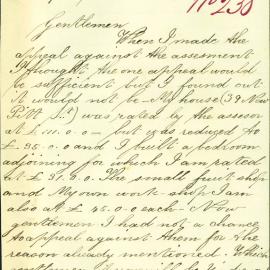 238
Gentlemen
When I made the
appeal against the assesment
I thought the one appeal would
be sufficient but I found out
it would not be - My house (39 New
Pitt St) was rated by the assesor
at £ 111.0.0 - but was reduced to
£ 95.0.0 and I built a bedroom
adjoining for which I am rated
at £ 91.0.0. The small fruit shop
and My own work-shop I am
also at £ 45.0.0 each - Now
gentlemen I had not a chance
to appeal against them for the
reason already mentioned. Which